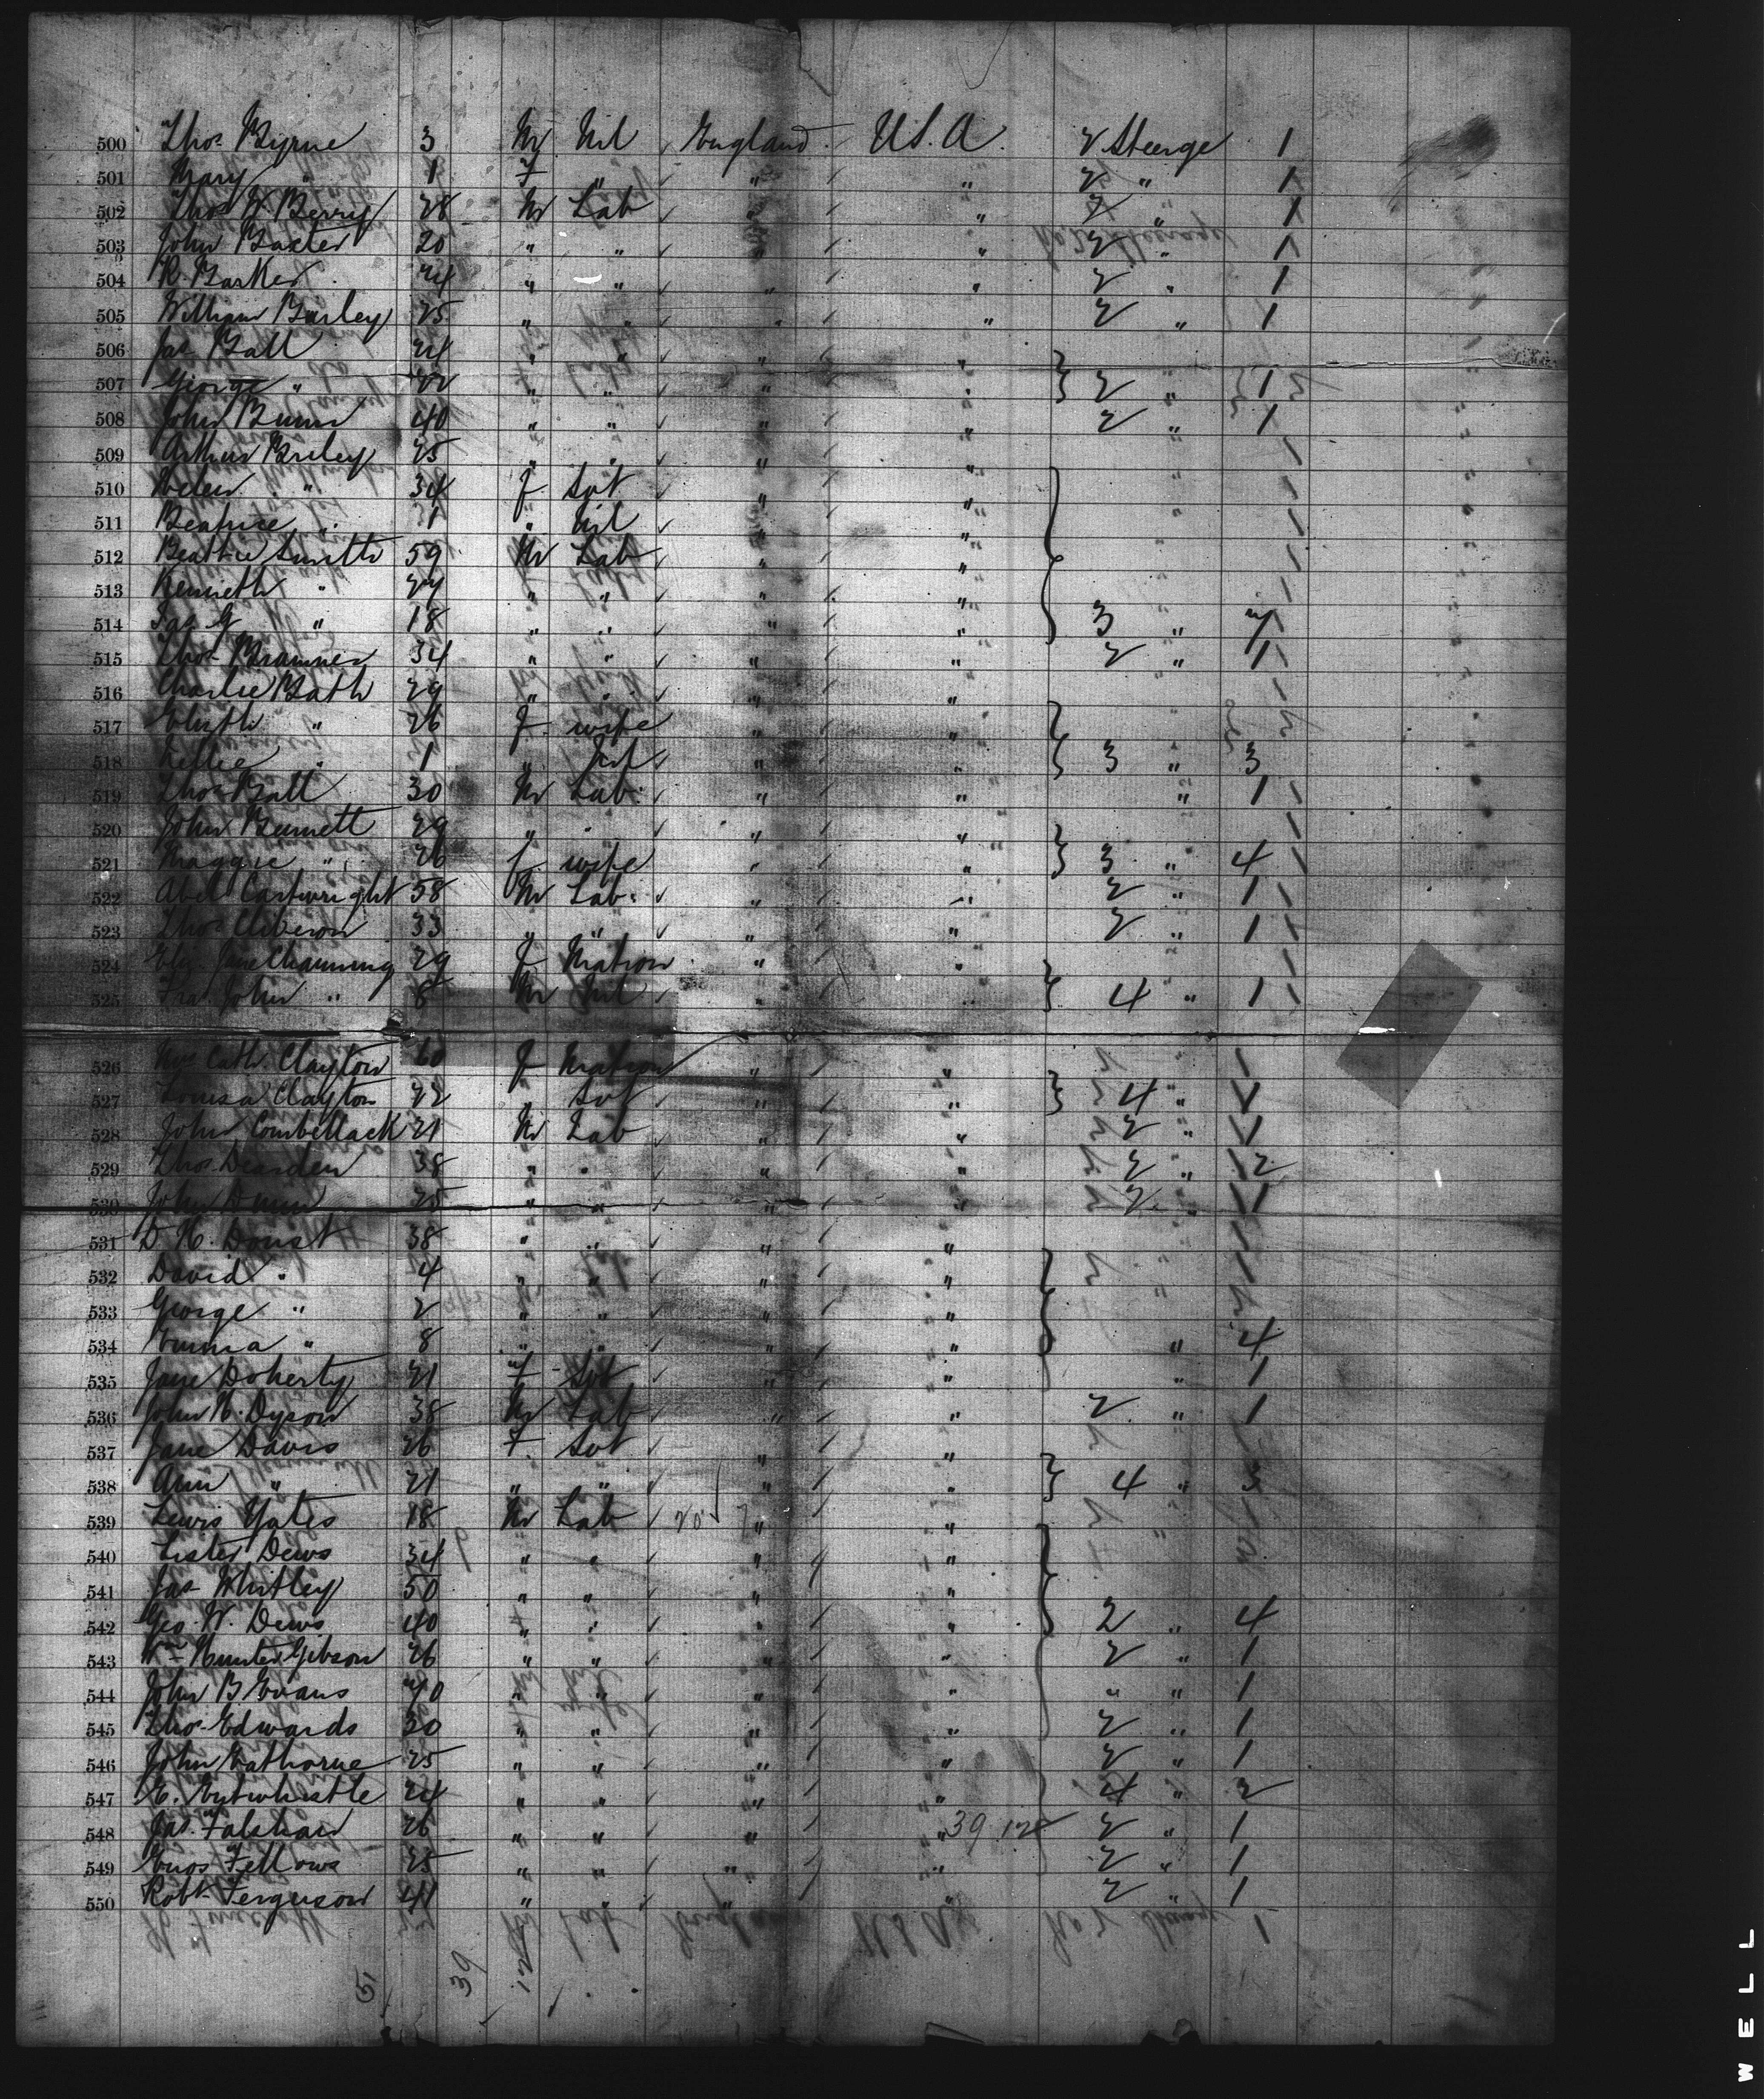 500 Thos. Byrne 3 M Nil England U.S.A. 2 Steerge 1
501 Mary " 1 F " " " 2 " 1
502 Thos W. Berry 28 M Lab " " 2 " 1
503 John Baxter 20 " " " " 2 " 1
504 R. Barker 24 " " " " 2 " 1
505 William Barley 25 " " " " 2 " 1
506 Jas Ball 24 " " " "
507 George " 22 " " " " 2 " 1
508 John Bunn 40 " " " " 2 " 1
509 Arthur Briley 25 " " " "
510 Helen " 34 F Svt " "
511 Beatrice " 1 " Nil " "
512 Smith 59 M Lab " "
513 Kenneth " 27 " " " "
514 Jas G " 18 " " " " 3 "
515 Thos. 34 " " " " 2 " 1
516 Charlie Bath 29 " " " "
517 " 26 F wife " "
518 " 1 " " " 3 " 3
519 Thos Batt 30 M Lab " " " 1
520 John 29 " " " "
521 Maggie " 26 F wife " " 3 " 4
522 Abel Cartwright 58 M Lab " " 2 " 1
523 Thos 33 " " " " 2 " 1
524 Eliz. Jane Channing 29 F Matron " "
525 Fra. John " 8 M Nil " " 4 " 1
526 Mrs Cath. Clayton 60 F Matron " "
527 Louisa Clayton 22 " Svt " " 4 " 1
528 John Combellack 21 M Lab " " 2 " 1
529 Thos Dearden 38 " " " " 2 " 2
530 John Dunn 25 " " " " 2 " 1
531 D. H. Doust 38 " " " "
532 David " 4 " " " "
533 George " 2 " " " "
534 Emma " 8 " " " " " 4
535 Jane Doherty 21 F Svt " " " 1
536 John H. Dyson 38 M Lab " " 2 " 1
537 Jane Davis 26 F Svt " "
538 Ann " 21 " " " " 4 " 3
539 Lewis Yates 18 M Lab " "
540 Lister Dews 34 " " " "
541 Jas Whitley 50 " " " "
542 Geo. W. Dews 40 " " " " 2 " 4
543 Wm Hunter Gibson 26 " " " " 2 " 1
544 John B. Evans 40 " " " " " " 1
545 Thos Edwards 30 " " " " 2 " 1
546 John Eathorne 25 " " " " 2 " 1
547 E. Entwhistle 24 " " " " 4 " 2
548 Jas. Falshaw 26 " " " " 39 12 2 " 1
549 Enos Fellows 25 " " " " 2 " 1
550 Robt. Ferguson 41 " " " " 2 " 1
39 12
WELL